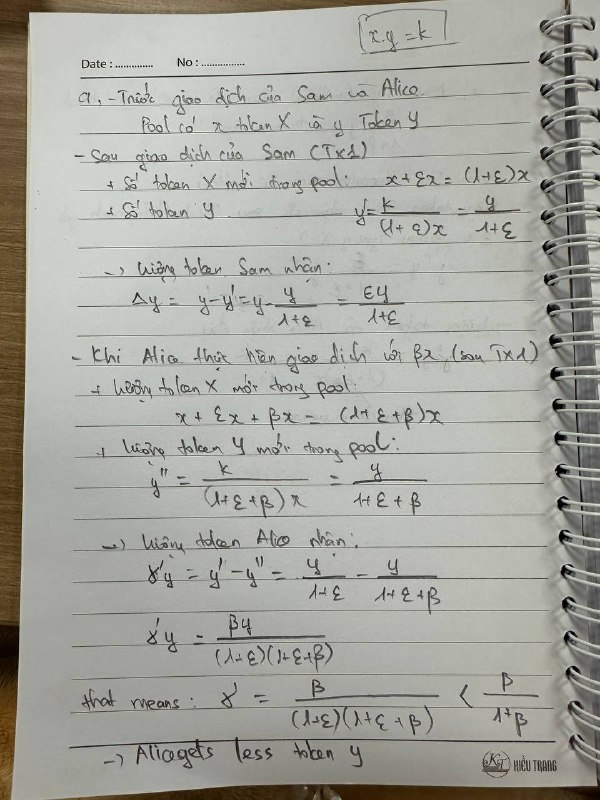 x.y = k
Date : .............. No : ................
a, - Trước giao dịch của Sam và Alice.
Pool có x token X và y Token Y
- Sau giao dịch của Sam (Tx1)
+ Số token X mới trong pool: x + εx = (1+ε)x
+ Số token Y y' = k/((1+ε)x) = y/(1+ε)
→ lượng token Sam nhận:
Δy = y - y' = y - y/(1+ε) = εy/(1+ε)
- Khi Alice thực hiện giao dịch với βx (sau Tx1)
+ lượng token X mới trong pool:
x + εx + βx = (1+ε+β)x
+ lượng token Y mới trong pool:
y'' = k/((1+ε+β)x) = y/(1+ε+β)
→ lượng token Alice nhận:
γ'y = y' - y'' = y/(1+ε) - y/(1+ε+β)
γ'y = βy/((1+ε)(1+ε+β))
that means: γ' = β/((1+ε)(1+ε+β)) < β/(1+β)
→ Alice gets less token y
KT KIỀU TRANG